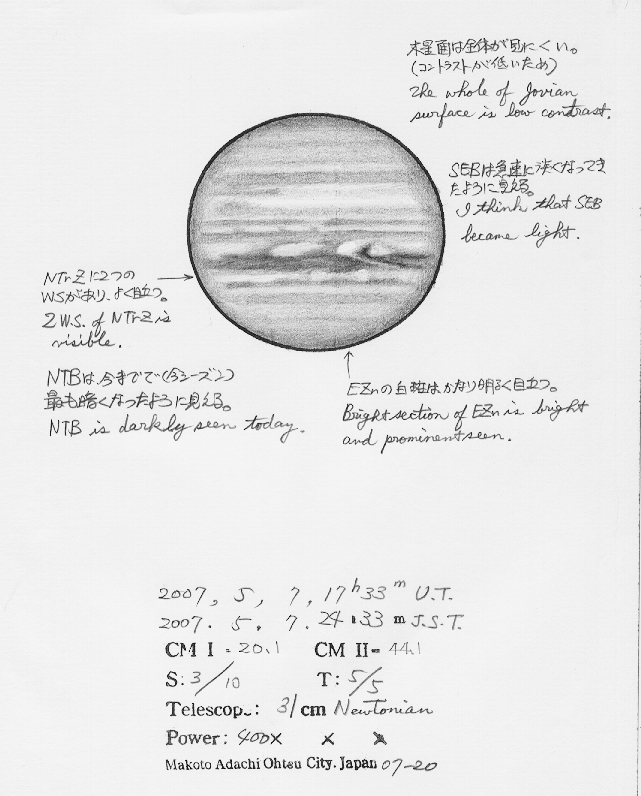 木星面は全体が見にくい。
(コントラストが低いため)
The whole of Jovian
surface is low contrast.
SEBは急速に淡くなってき
たように見える。
I think that SEB
became light.
NTrZに2つの
WSがあり、よく目立つ。
2 W.S. of NTrZ is
visible.
NTBは、今までで(今シーズン)
最も暗くなったように見える。
NTB is darkly seen today.
EZnの白斑はかなり明るく目立つ。
Bright section of EZn is bright
and prominent seen.
2007, 5, 7, 17h33m U.T.
2007. 5. 7. 24h33m J.S.T.
CM I = 20.1 CM II= 44.1
S: 3/10 T: 5/5
Telescop.: 31cm Newtonian
Power: 400× × ×
Makoto Adachi Ohtsu City. Japan 07-20